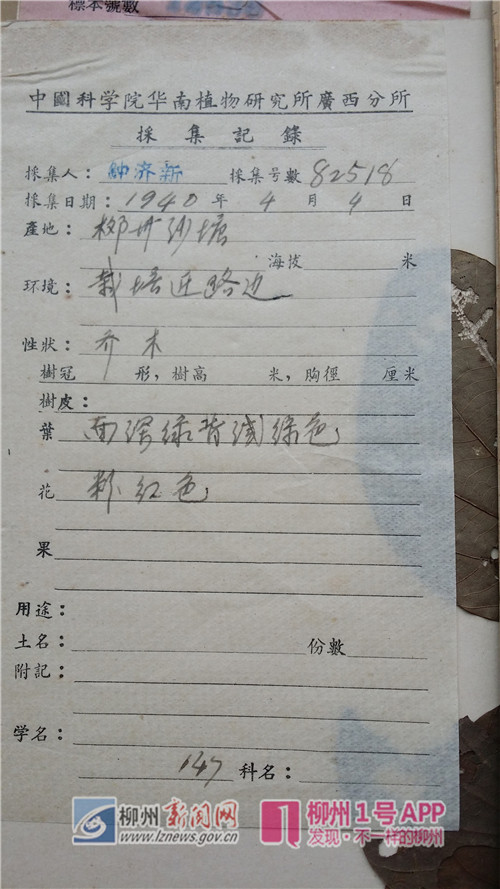 標本號數
中國科学院华南植物研究所廣西分所
採集記錄
採集人：鈡济新 採集号數 82518
採集日期：1940年 4 月 4 日
產地：柳州沙塘
海拔 米
环境：栽培近路边
性狀：乔木
樹冠 形，樹高 米，胸徑 厘米
樹皮：
葉 面深绿背浅绿色
花 粉红色
果
用途：
土名： 份數
附記：
学名：
147 科名：
柳州新闻网
www.lznews.gov.cn
柳州1号APP
发现·不一样的柳州